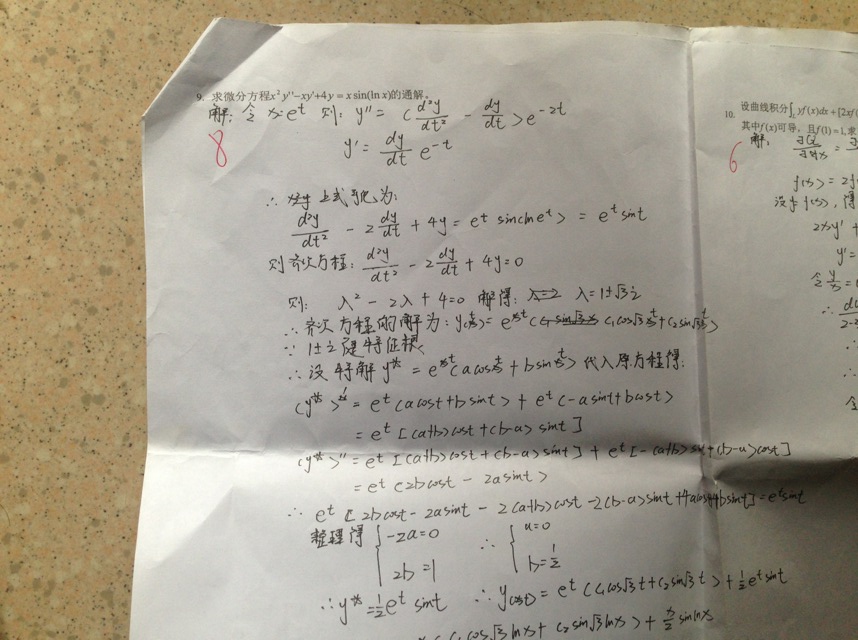 9. 求微分方程x²y''-xy'+4y=xsin(lnx)的通解。
解: 令 x=e^t 则: y''=(d²y/dt² - dy/dt)e^{-2t}
8
y'=dy/dt e^{-t}
∴ 上式可化为:
d²y/dt² - 2dy/dt + 4y = e^t sin(lne^t) = e^t sint
则齐次方程: d²y/dt² - 2dy/dt + 4y=0
则: λ²-2λ+4=0 解得: λ=1±√3i
∴齐次方程的解为: y(t)=e^t(C₁cos√3t+C₂sin√3t)
∵ 1±i是特征根
∴设特解y*=e^t(acost+bsint)代入原方程得:
(y*)'=e^t(acost+bsint)+e^t(-asint+bcost)
=e^t[(a+b)cost+(b-a)sint]
(y*)''=e^t[(a+b)cost+(b-a)sint]+e^t[-(a+b)sint+(b-a)cost]
=e^t(2bcost-2asint)
∴ e^t[2bcost-2asint-2(a+b)cost-2(b-a)sint+4acost+4bsint]=e^tsint
整理得 {-2a=0 2b=1 ∴ {a=0 b=1/2
∴y*=1/2e^t sint ∴ y(t)=e^t(C₁cos√3t+C₂sin√3t)+1/2e^tsint
(C₁cos√3lnx+C₂sin√3lnx)+x/2sinlnx
10. 设曲线积分∫_L yf(x)dx+[2xf(
其中f(x)可导，且f(1)=1,求
解:
6
f(x)=2f
设y=f(x), 得
2xy'+
y'=
令y/x=
∴
∴
令